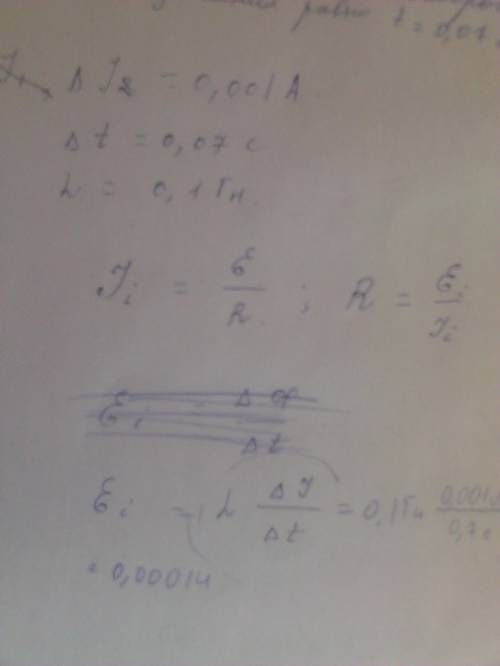 равно t = 0,07
Δ J₂ = 0,001 A.
Δt = 0,07 c
L = 0,1 Гн.
Jᵢ = Ɛ/R ; R = Ɛᵢ/Jᵢ
Ɛᵢ Δφ/Δt
Ɛᵢ = L ΔJ/Δt = 0,1 Гн 0,001A/0,7c
= 0,00014